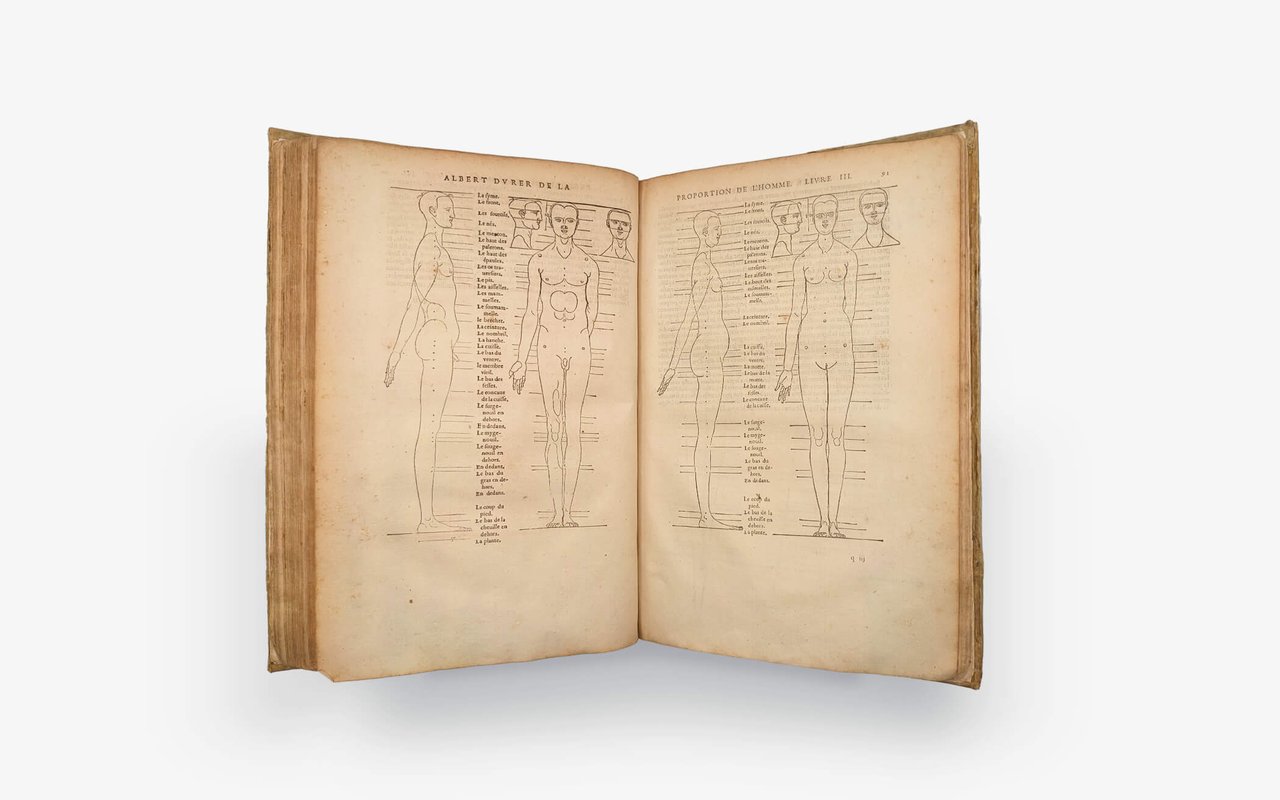 ALBERT DVRER DE LA
La syme.
Le front.
Les sourcils.
Le nés.
Le menton.
Le haut des
palerons.
Le haut des
épaules.
Les os tra-
uersiers.
Le pis.
Les aisselles.
Les mam-
melles.
Le soumam-
melle.
le brechet.
La ceinture.
Le nombril.
La hanche.
La cuisse.
Le bas du
ventre.
le membre
viril.
Le bas des
fesses.
Le concaue
de la cuisse.
Le surge-
nouil en
dehors.
En dedans.
Le myge-
nouil.
Le souge-
nouil en
dehors.
En dedans.
Le bas du
gras en de-
hors.
En dedans.
Le coup du
pied.
Le bas de la
cheuille en
dehors.
La plante.
PROPORTION DE L'HOMME. LIVRE III. 91
La syme.
Le front.
Les sourcils.
Le nés.
Le menton.
Le haut des
palerons.
Les os tra-
uersiers.
Les aisselles.
Le bout des
mamelles.
Le soumam-
melle.
La ceinture.
Le nombril.
La cuisse.
Le bas du
ventre.
La motte.
Le bas de la
motte.
Le bas des
fesses.
Le concaue
de la cuisse.
Le surge-
nouil.
Le myge-
nouil.
Le souge-
nouil.
Le bas du
gras en de-
hors.
En dedans.
Le coup du
pied.
Le bas de la
cheuille en
dehors.
La plante.
q iij